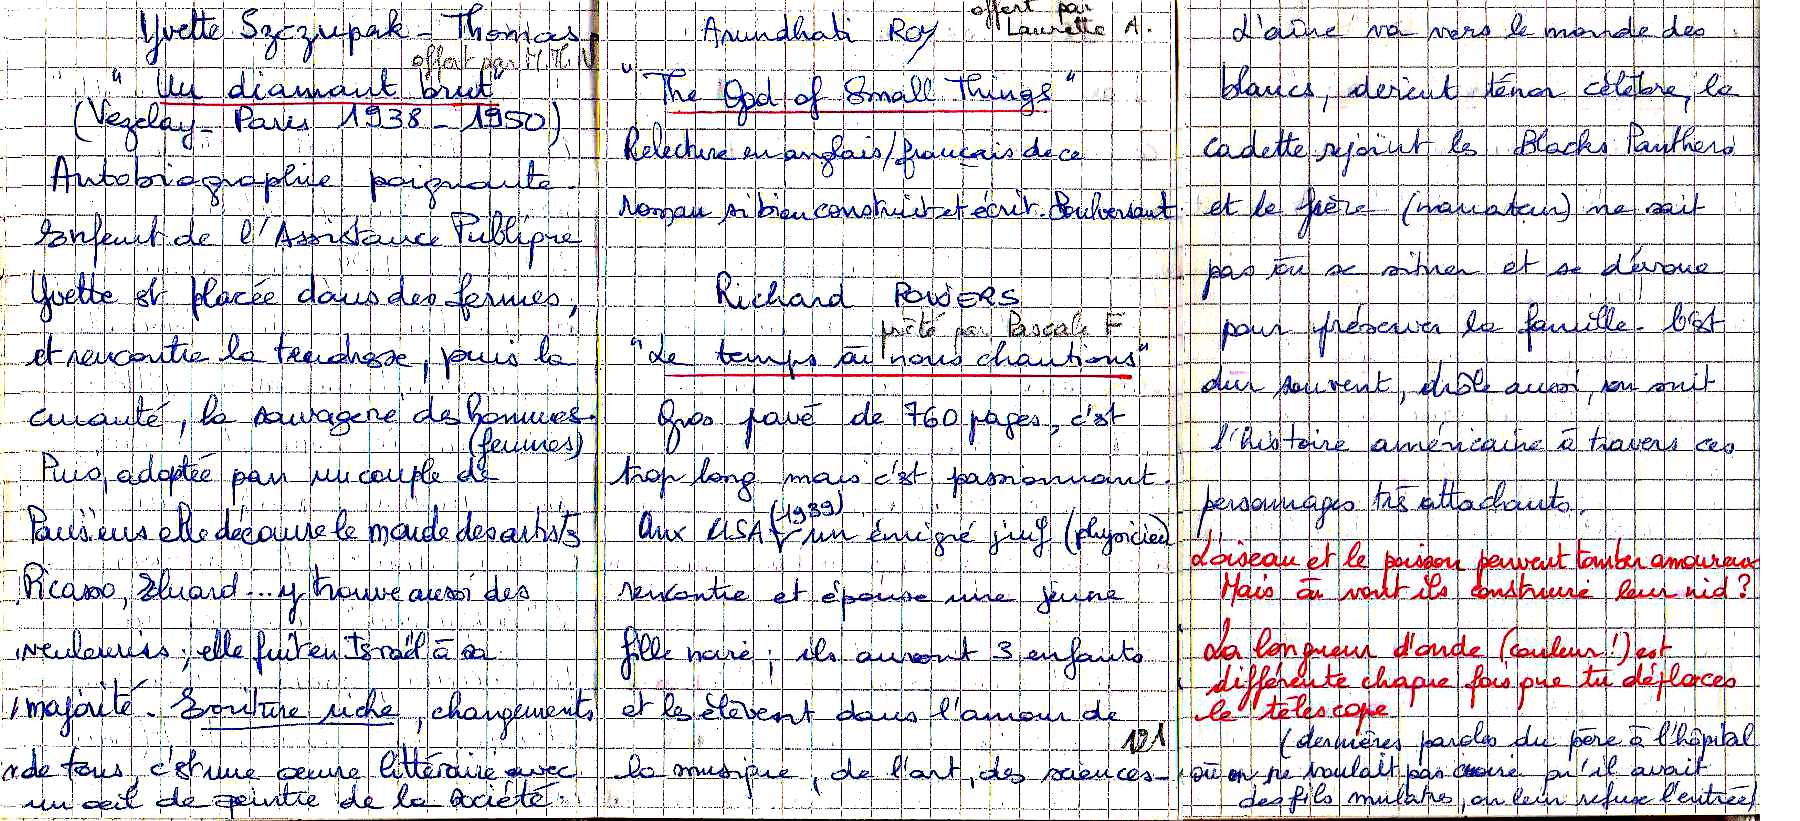 Yvette Szczupak-Thomas
offert par M.Th N
"Un diamant brut"
(Vezelay-Paris 1938-1950)
Autobiographie poignante.
Enfant de l'Assistance Publique
Yvette est placée dans des fermes,
et rencontre la tendresse, puis la
cruauté, la sauvagerie des hommes.
(femmes)
Puis, adoptée par un couple de
Parisiens elle découvre le monde des artistes
Picasso, Eluard... y trouve aussi des
; elle fuit en Israël à sa
majorité. Ecriture riche, changements
de tons, c'est une oeuvre littéraire avec
un oeil de peintre de la société.
Arundhati ROY
offert par
Laurette A.
"The God of Small Things"
Relecture en anglais/francais de ce
roman si bien construit et écrit. Bouleversant
Richard POWERS
prêté par Pascale F
"Le temps où nous chantions"
Gros pavé de 760 pages, c'est
trop long mais c'est passionnant.
Aux USA (1939) un émigré juif (physicien)
rencontre et épouse une jeune
fille noire; ils auront 3 enfants
et les élèvent dans l'amour de
la musique, de l'art, des sciences-
121
L'aîné va vers le monde des
blancs, devient ténor célèbre, la
cadette rejoint les Blacks Panthers
et le frère (narrateur) ne sait
pas où se situer et se dévoue
pour préserver la famille. C'est
dur souvent, drôle aussi, on suit
l'histoire américaine à travers ces
personnages très attachants.
L'oiseau et le poisson peuvent tomber amoureux
Mais où vont ils construire leur nid?
La longueur d'onde (couleur!) est
différente chaque fois que tu déplaces
le télescope
(dernières paroles du père à l'hôpital
où on ne voulait pas croire qu'il avait
des fils mulatres, on leur refuse l'entrée)